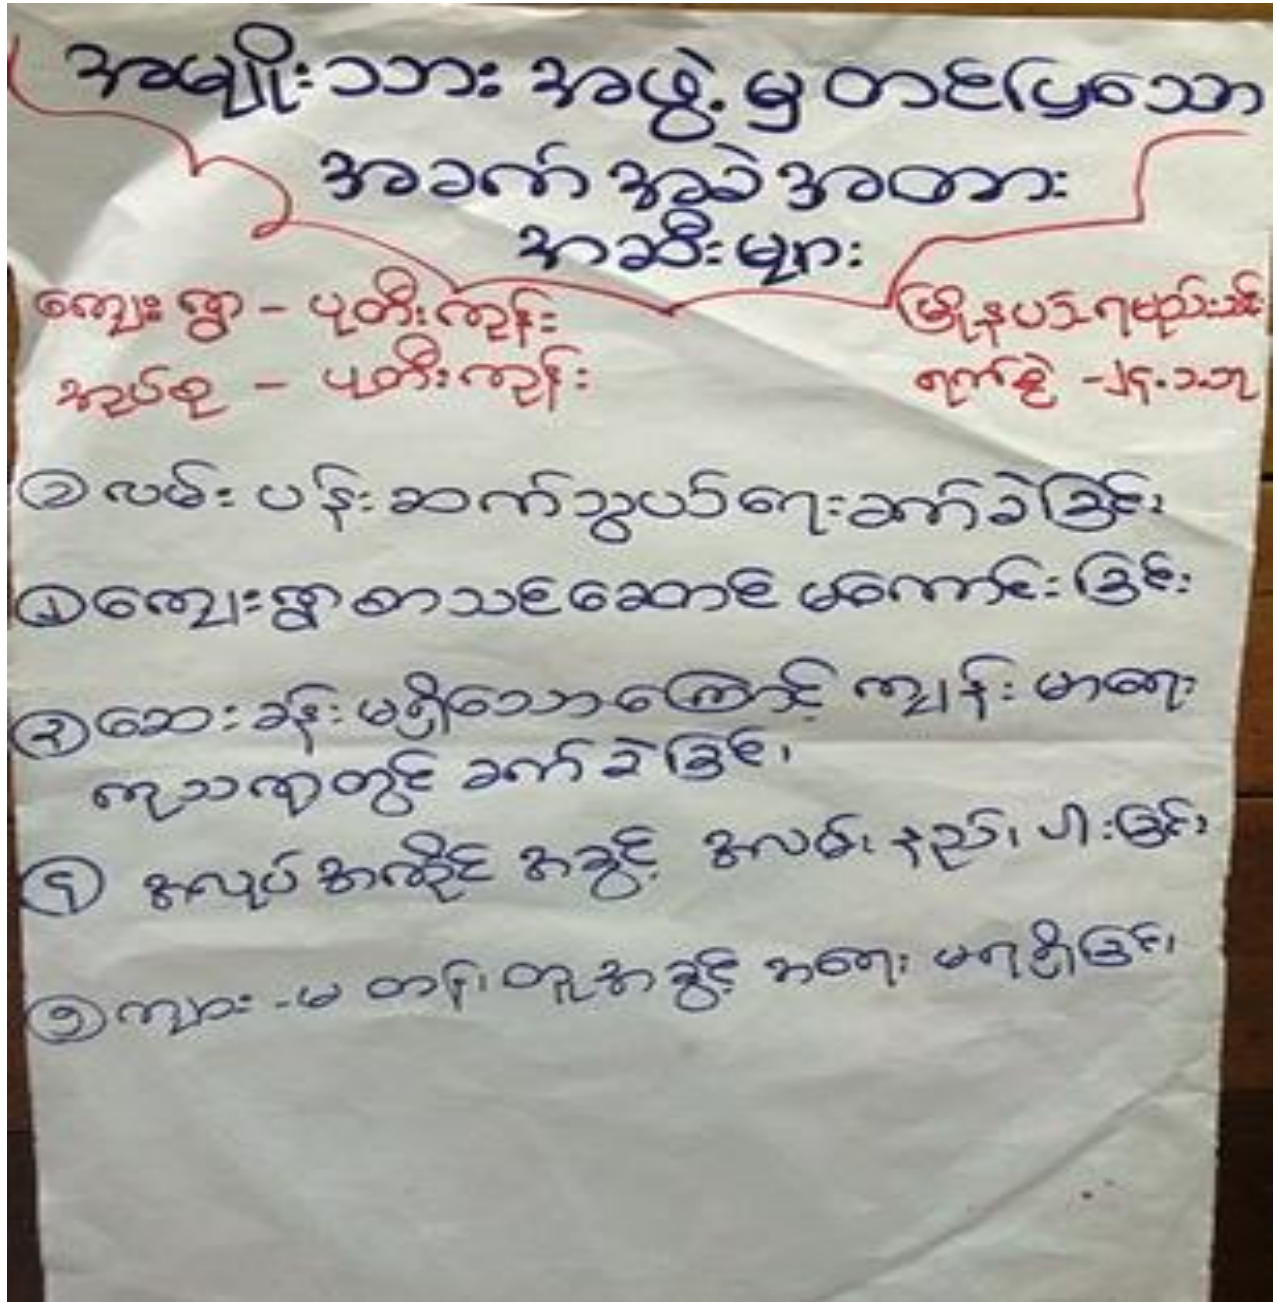 အမျိုးသား အဖွဲ့ မှ တင်ပြသော
အခက် အခဲ အတား
အဆီးများ
ကျေးရွာ - ပုတီးကုန်း
မြို့နယ် ရမည်းသင်း
အုပ်စု - ပုတီးကုန်း
ရက်စွဲ - ၂၄.၁.၁၇
၁ လမ်း ပန်း ဆက်သွယ်ရေး ခက်ခဲခြင်း၊
၂ ကျေးရွာ စာသင်ဆောင် မကောင်းခြင်း၊
၃ ဆေးခန်း မရှိသောကြောင့် ကျန်းမာရေး
ကုသရာတွင် ခက်ခဲခြင်း၊
၄ အလုပ် အကိုင် အခွင့် အလမ်း နည်း ပါးခြင်း၊
၅ ကျား - မ တန်းတူအခွင့် အရေး မရရှိခြင်း၊